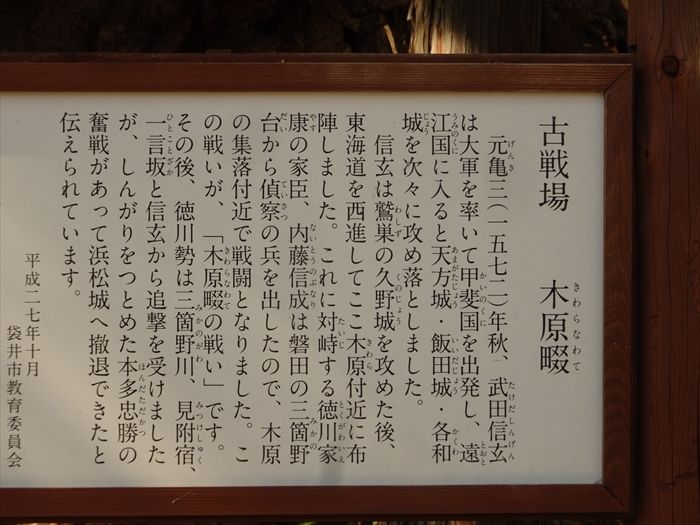 古戦場　木原畷
元亀三(一五七二)年秋、武田信玄
は大軍を率いて甲斐国を出発し、遠
江国に入ると天方城・飯田城・各和
城を次々に攻め落としました。
信玄は鷲巣の久野城を攻めた後、
東海道を西進してここ木原付近に布
陣しました。これに対峙する徳川家
康の家臣、内藤信成は磐田の三箇野
台から偵察の兵を出したので、木原
の集落付近で戦闘となりました。こ
の戦いが、「木原畷の戦い」です。
その後、徳川勢は三箇野川、見附宿、
一言坂と信玄から追撃を受けました
が、しんがりをつとめた本多忠勝の
奮戦があって浜松城へ撤退できたと
伝えられています。
平成二七年十月
袋井市教育委員会